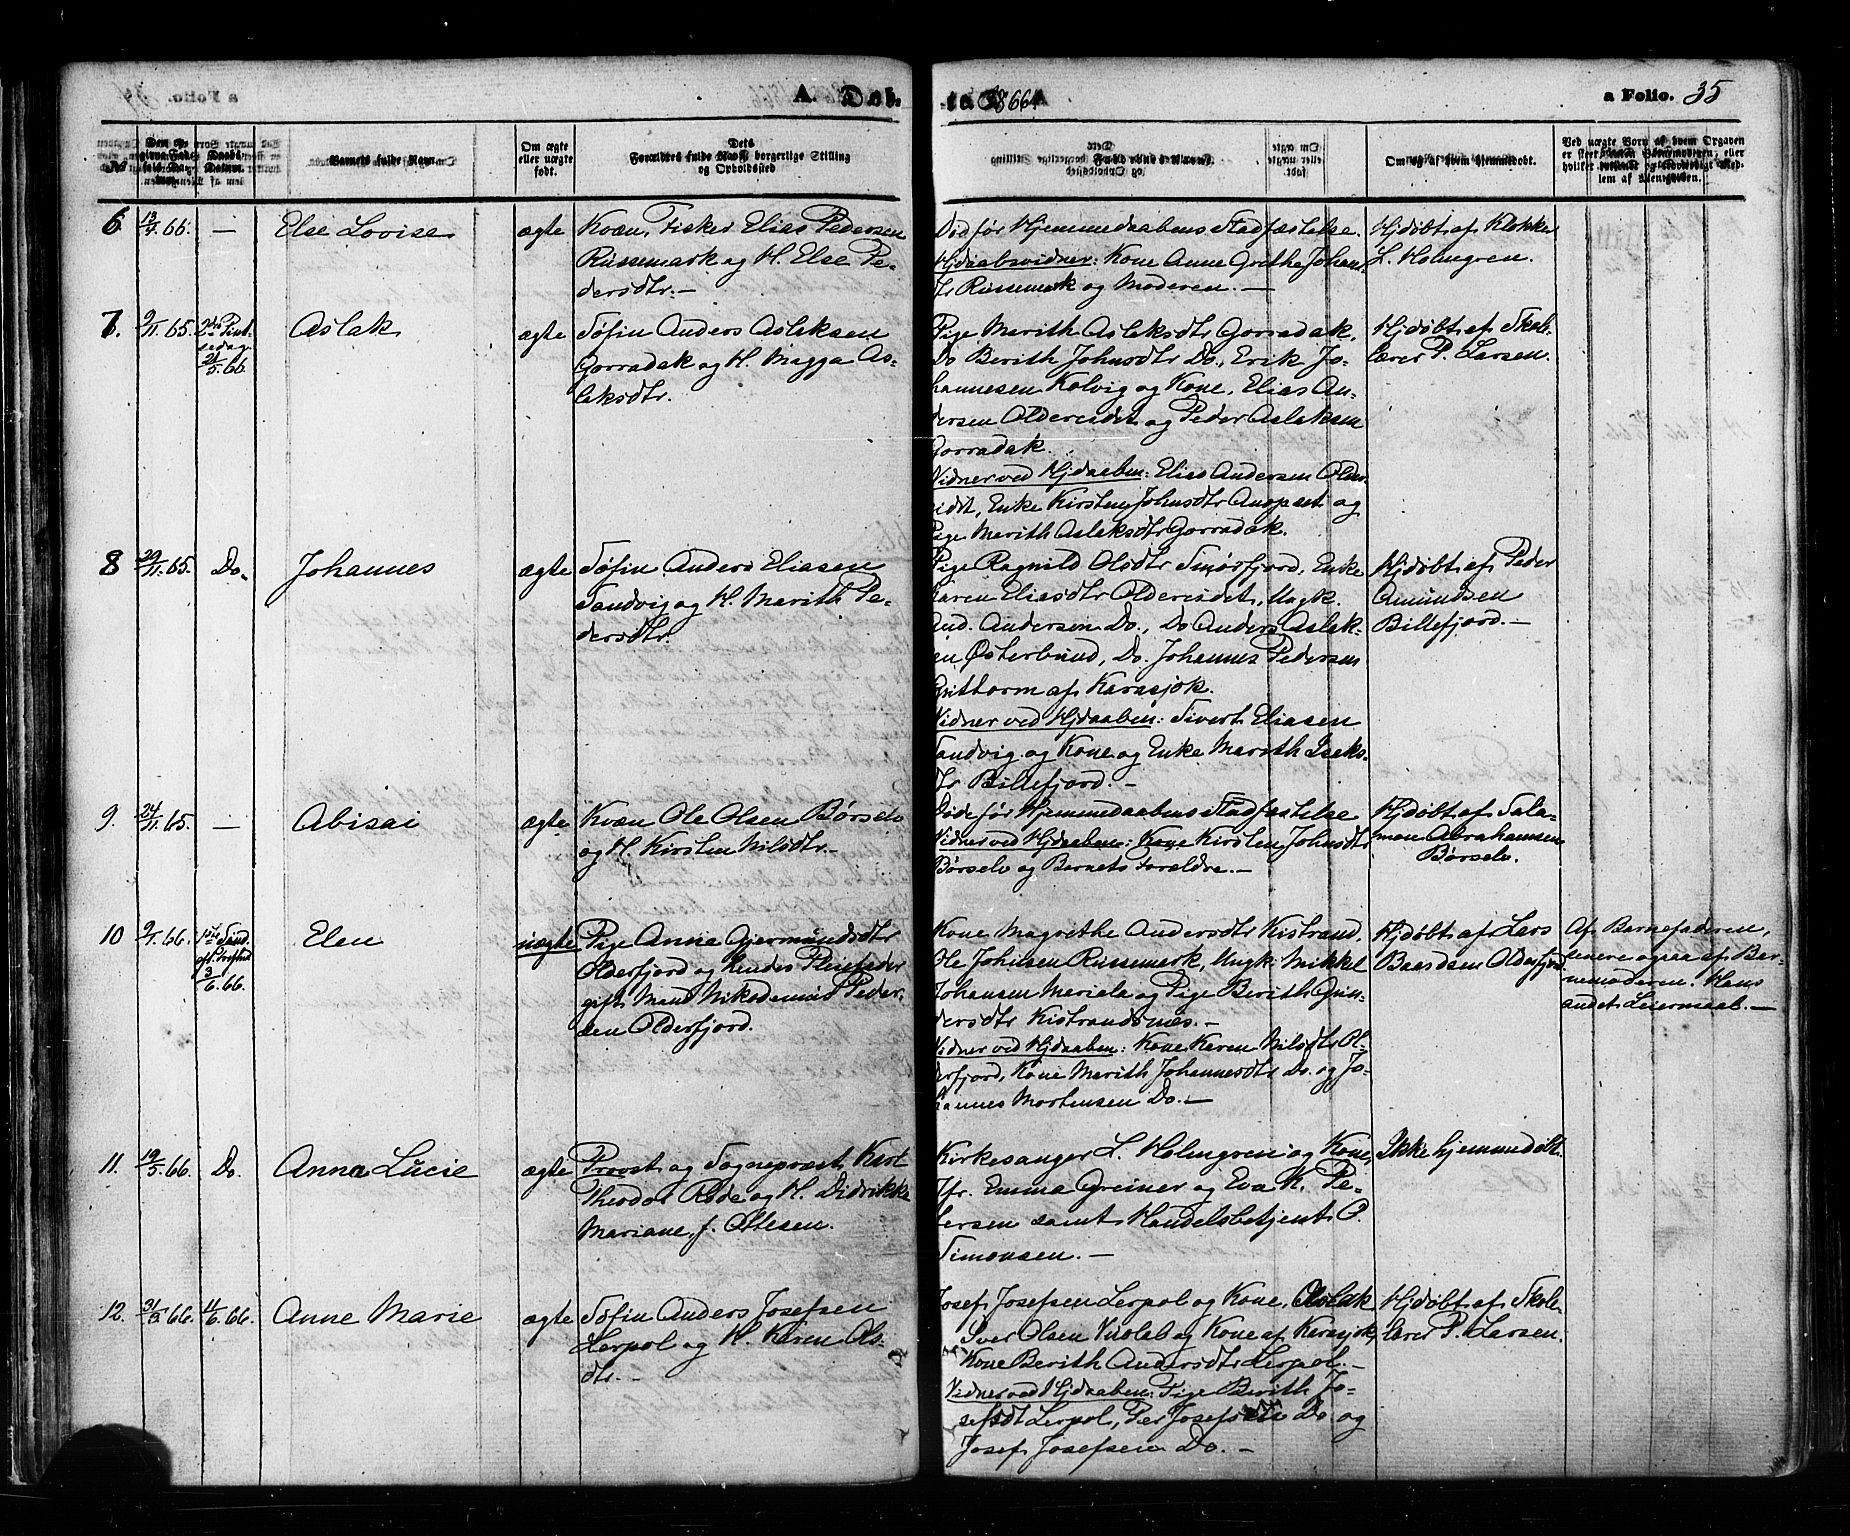 A. Døb-
te 1866.
a Folio. 35
Barnets fulde Navn.
Om ægte
eller uægte
født.
Dets
Forældres fulde Navn, borgerlige Stilling
og Opholdssted
Om og af hvem hjemmedøbt.
6 13/4 66. — Else Lovise ægte Kvæn, Fisker Elias Pedersen
Russemark og H. Else Pe-
dersdtr. —
Død før Hjemmedaabens Stadfæstelse.
Hjdaabsvidner: Kone Anne Grethe Johans
dtr Russemark og Moderen. —
Hjdøbt af Klokker
L. Holmgren.
7. 9/11 65. 2den Pint-
sedag
21/5 66.
Aslak ægte Søfin Anders Aslaksen
Gorradak og H. Magga As-
laksdtr.
Pige Marith Aslaksdtr Gorradak,
Do Berith Johnsdtr Do., Erik Jo-
hannesen Kolvig og Kone, Elias An-
dersen Oldereidet og Peder Aslaksen
Gorradak.
Vidner ved Hjdaaben: Elias Andersen Older
eidet, Enke Kirsten Johnsdtr Anopset og
Pige Marith Aslaksdtr Gorradak.
Hjdøbt af Skol-
lærer P. Larsen.
8 29/11 65. Do. Johannes ægte Søfin Anders Eliasen
Sandvig og H. Marith Pe-
dersdtr.
Pige Ragnild Olsdtr Smørfjord, Enke
Karen Eliasdtr Oldereidet, Ungk.
And. Andersen Do., Do Anders Aslak-
sen Østerbund, Do. Johannes Pedersen
Guttorm af Karasjok.
Vidner ved Hjdaaben: Sivert Eliasen
Sandvig og Kone og Enke Marith Isaks-
dtr Billefjord. —
Hjdøbt af Peder
Amundsen
Billefjord. —
9. 24/11 65. — Abisai ægte Kvæn Ole Olsen Børselv
og H. Kirsten Nilsdtr. —
Døde før Hjemmedaabens Stadfæstelse
Vidner ved Hjdaaben: Kone Kirsten Johnsdtr
Børselv og Barnets Forældre. —
Hjdøbt af Sala-
mon Abrahamsen
Børselv.
10 9/1 66. 1ste Sønd.
eft. Trefold
3/6 66.
Elen uægte Pige Anna Gjermundsdtr
Olderfjord og hendes Pleiefader
gift Mand Nikodemus Peder-
sen Olderfjord.
Kone Magrethe Andersdtr Kistrand,
Ole Johnsen Russemark, Ungk. Mikkel
Johansen Mariela og Pige Berith Gun-
dersdtr Kistrandsnæs. —
Vidner ved Hjdaaben: Kone Karen Nilsdtr Ol-
derfjord, Kone Marith Johannesdtr Do. og Jo-
hannes Mortensen Do. —
Hjdøbt af Lars
Baardsen Olderfjord
Af Barnefaderen,
senere ogsaa af Bar-
nemoderen. Hans
andet Leiermaal. —
11. 19/5 66. Do. Anna Lucie ægte Provst og Sognepræst Karl
Theodor Rode og H. Didrikke
Mariane, f. Ottesen.
Kirkesanger L. Holmgren og Kone,
Jfr. Emma Greiner og Eva K. Pe-
tersen samt Handelsbetjent O.
Simonsen. —
Ikke hjemmedøbt.
12. 31/3 66. 11/6 66. Anne Marie ægte Søfin Anders Josefsen
Lerpol og H. Karen Ols-
dtr. —
Josef Josefsen Lerpol og Kone, Aslak
Iver Olsen Vuolab og Kone af Karasjok,
Kone Berith Andersdtr Lerpol. —
Vidner ved Hjdaaben: Pige Berith Jo-
sefsdt Lerpol, Per Josefsen Do og
Josef Josefsen Do. —
Hjdøbt af Skol-
lærer P. Larsen.